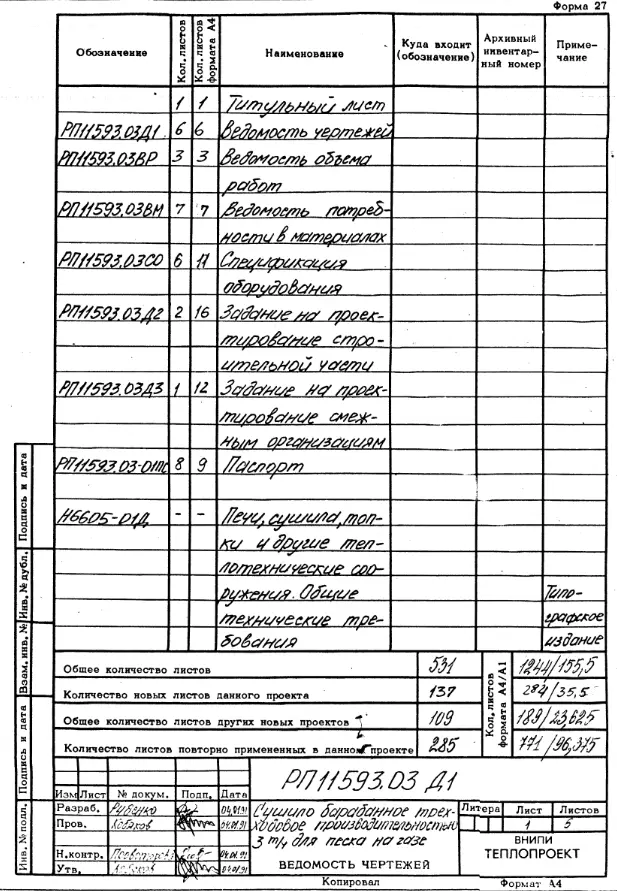 Форма 27
Обозначение
Кол. листов
Кол. листов формата А4
Наименование
Куда входит (обозначение)
Архивный инвентар-ный номер
Приме-чание
1 1 Титульный лист
РП11593.03Д1 6 6 Ведомость чертежей
РП11593.03ВР 3 3 Ведомость объема
работ
РП11593.03ВМ 7 7 Ведомость потреб-
ности в материалах
РП11593.03СО 6 11 Спецификация
оборудования
РП11593.03Д2 2 16 Задание на проек-
тирование стро-
ительной части
РП11593.03Д3 1 12 Задание на проек-
тирование смеж-
ным организациям
РП11593.03-01ПС 8 9 Паспорт
Н6605-01Д - - Печи, сушила, топ-
ки и другие теп-
лотехнические соо-
ружения. Общие Типо-
технические тре- графское
бования издание
Общее количество листов 531 1244/155,5
Количество новых листов данного проекта 137 284/35,5
Общее количество листов других новых проектов 109 189/23,625
Количество листов повторно примененных в данном проекте 285 771/96,375
Кол. листов формата А4/А1
Подпись и дата
Инв. № дубл.
Взам. инв. №
Подпись и дата
Инв. № подл.
РП11593.03 Д1
Изм Лист № докум. Подп. Дата
Разраб. 04.01.91
Пров. 04.01.91
Н.контр. 04.01.91
Утв. 04.01.91
Сушило барабанное трех-
ходовое производительностью
3 т/ч для песка на газе
ВЕДОМОСТЬ ЧЕРТЕЖЕЙ
Литера Лист Листов
1 5
ВНИПИ
ТЕПЛОПРОЕКТ
Копировал Формат А4